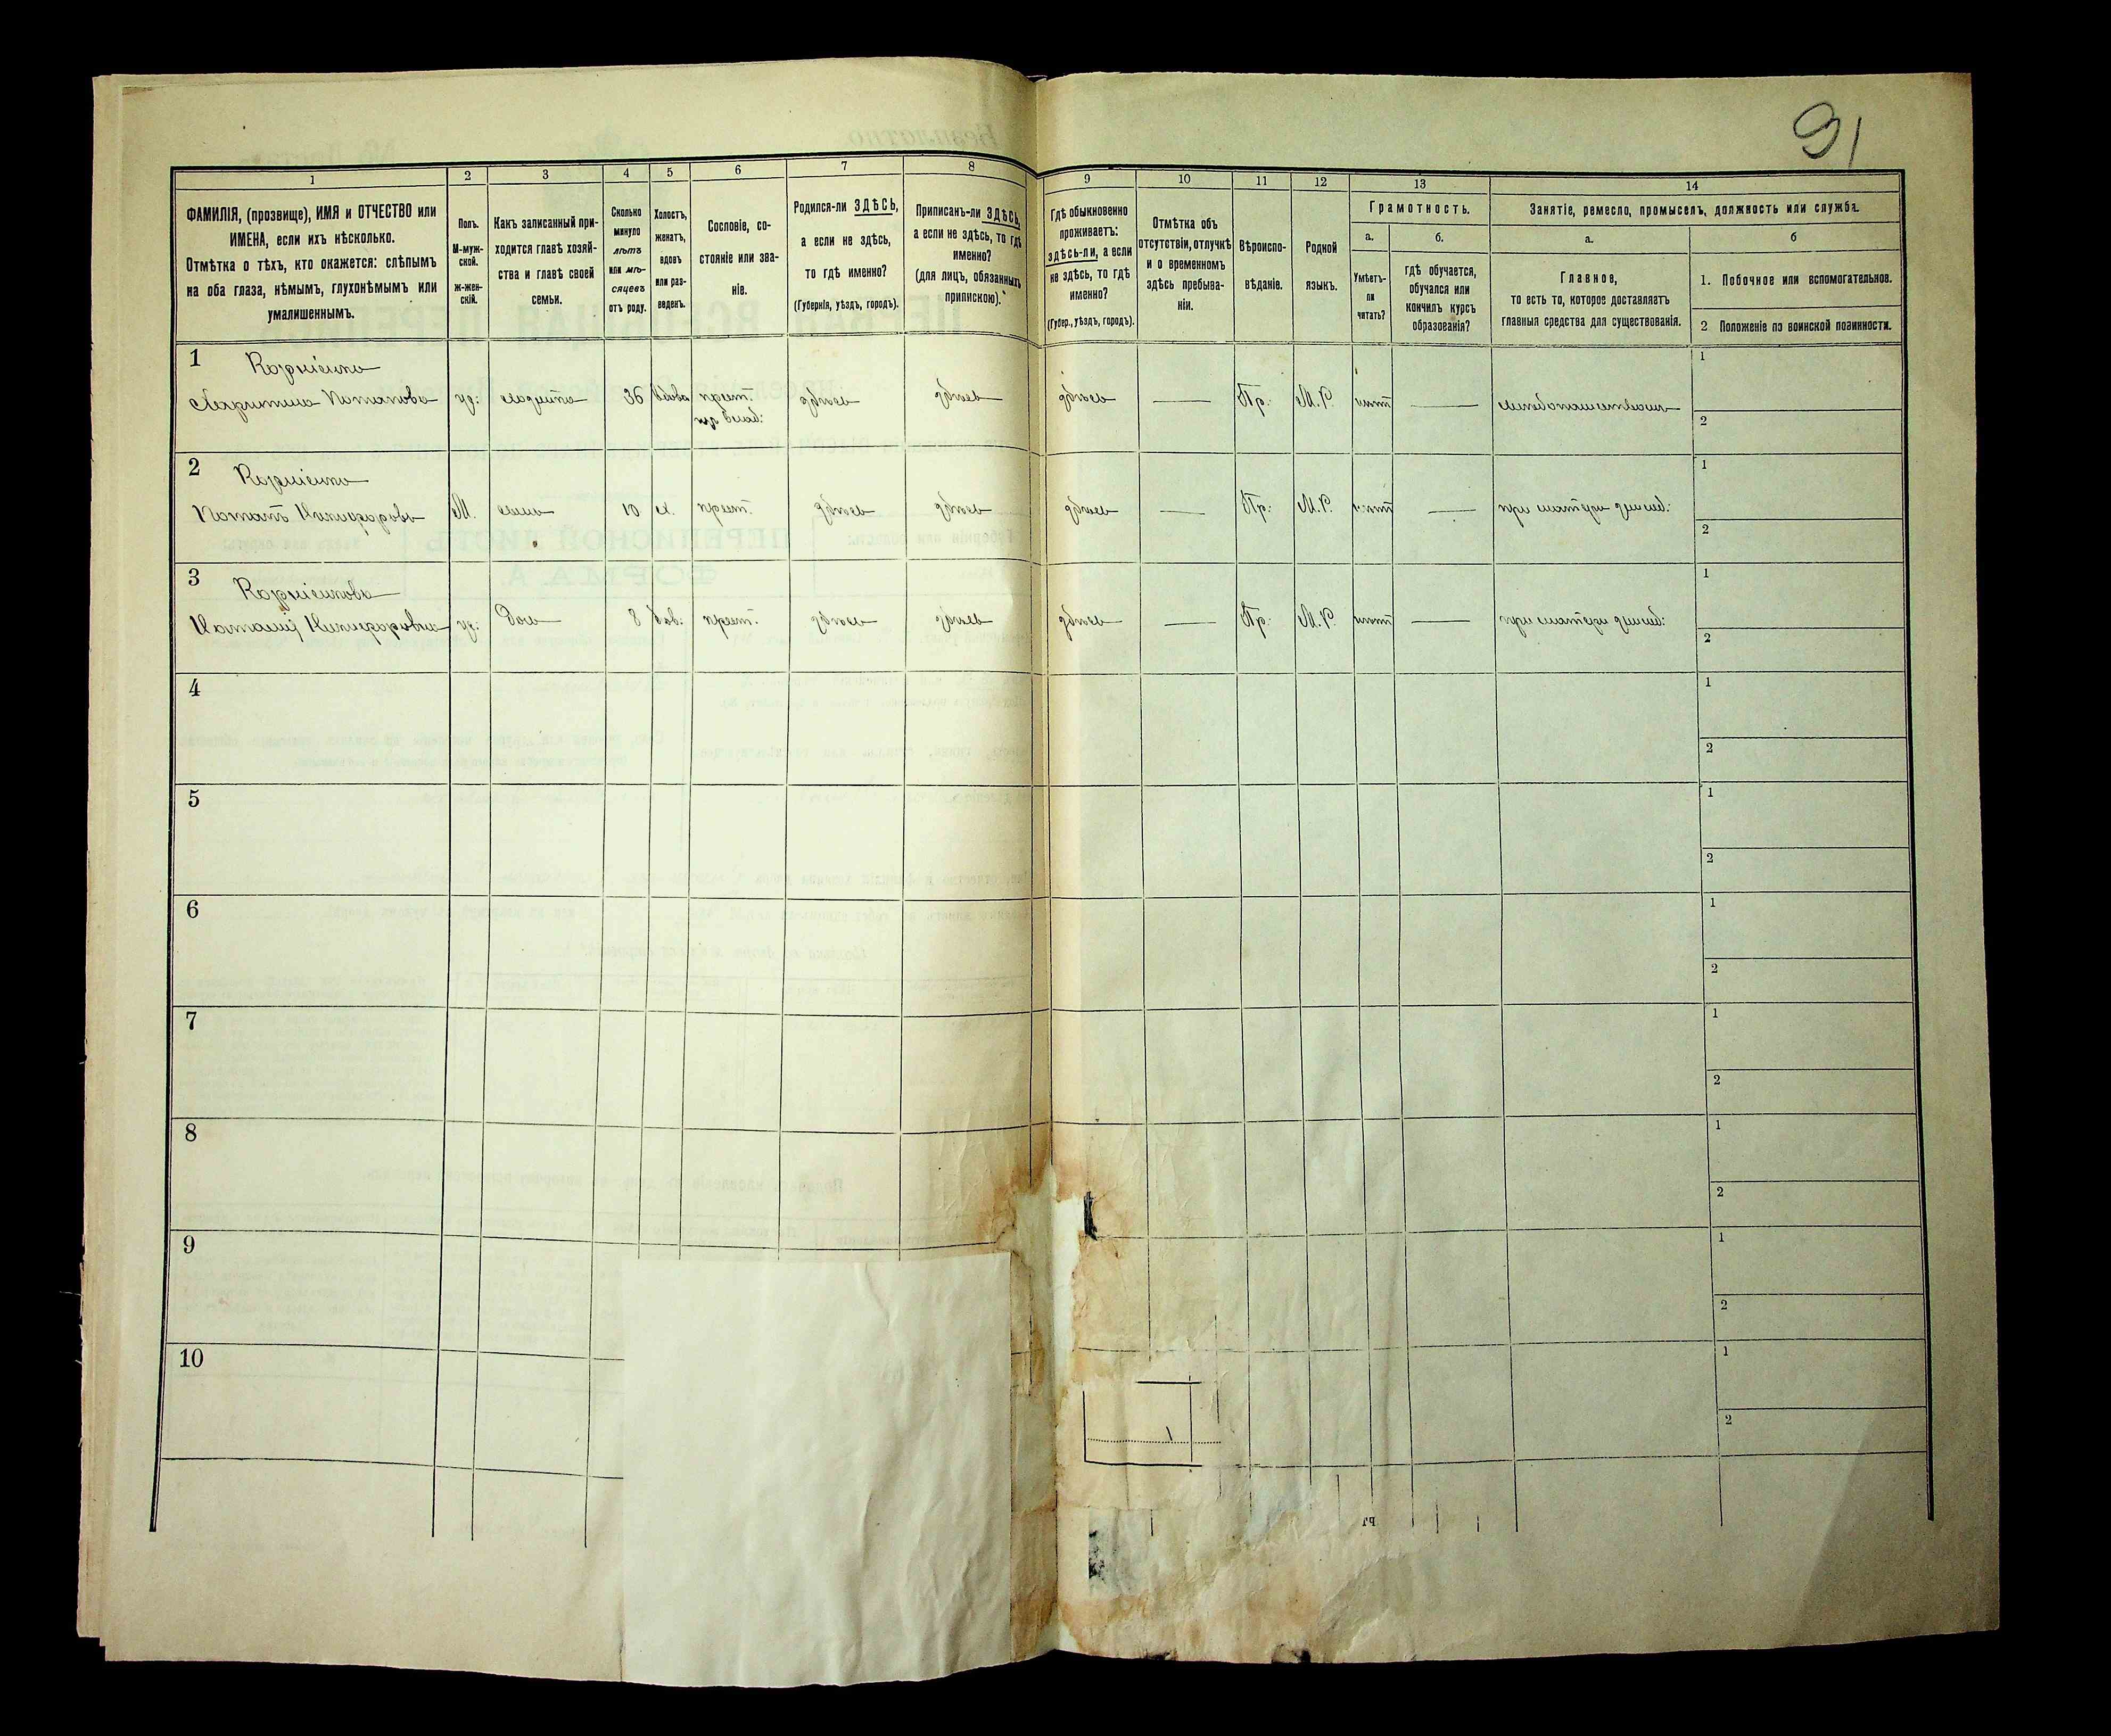 91
1 2 3 4 5 6 7 8 9 10 11 12 13 14
ФАМИЛІЯ, (прозвище), ИМЯ и ОТЧЕСТВО или
ИМЕНА, если ихъ нѣсколько.
Отмѣтка о тѣхъ, кто окажется: слѣпымъ
на оба глаза, нѣмымъ, глухонѣмымъ или
умалишеннымъ.
Полъ.
М-муж-
ской.
Ж-жен-
скій.
Какъ записанный при-
ходится главѣ хозяй-
ства и главѣ своей
семьи.
Сколько
минуло
лѣтъ
или мѣ-
сяцевъ
отъ роду.
Холостъ,
женатъ,
вдовъ
или раз-
веденъ.
Сословіе, со-
стояніе или зва-
ніе.
Родился-ли ЗДѢСЬ,
а если не здѣсь,
то гдѣ именно?
(Губернія, уѣздъ, городъ).
Приписанъ-ли ЗДѢСЬ,
а если не здѣсь, то гдѣ
именно?
(для лицъ, обязанныхъ
припискою).
Гдѣ обыкновенно
проживаетъ:
здѣсь-ли, а если
не здѣсь, то гдѣ
именно?
(Губер., уѣздъ, городъ).
Отмѣтка объ
отсутствіи, отлучкѣ
и о временномъ
здѣсь пребыва-
ніи.
Вѣроиспо-
вѣданіе.
Родной
языкъ.
Грамотность.
а.
Умѣетъ-
ли
читать?
б.
гдѣ обучается,
обучался или
кончилъ курсъ
образованія?
Занятіе, ремесло, промыселъ, должность или служба.
а.
Главное,
то есть то, которое доставляетъ
главныя средства для существованія.
б
1. Побочное или вспомогательное.
2 Положеніе по воинской повинности.
1 Корніенко
Потапова ж: 36 вдова крест. здѣсь здѣсь здѣсь — Пр. М.Р. нѣтъ —
1
2
2 Корніенко
Потапъ Никифоровъ М. сынъ 10 х. крест. здѣсь здѣсь здѣсь — Пр. М.Р. нѣтъ — при матери
1
2
3 Корніенкова
Никифоровна ж: Дочь 8 дѣв: крест. здѣсь здѣсь здѣсь — Пр. М.Р. нѣтъ — при матери
1
2
4
1
2
5
1
2
6
1
2
7
1
2
8
1
2
9
1
2
10
1
2